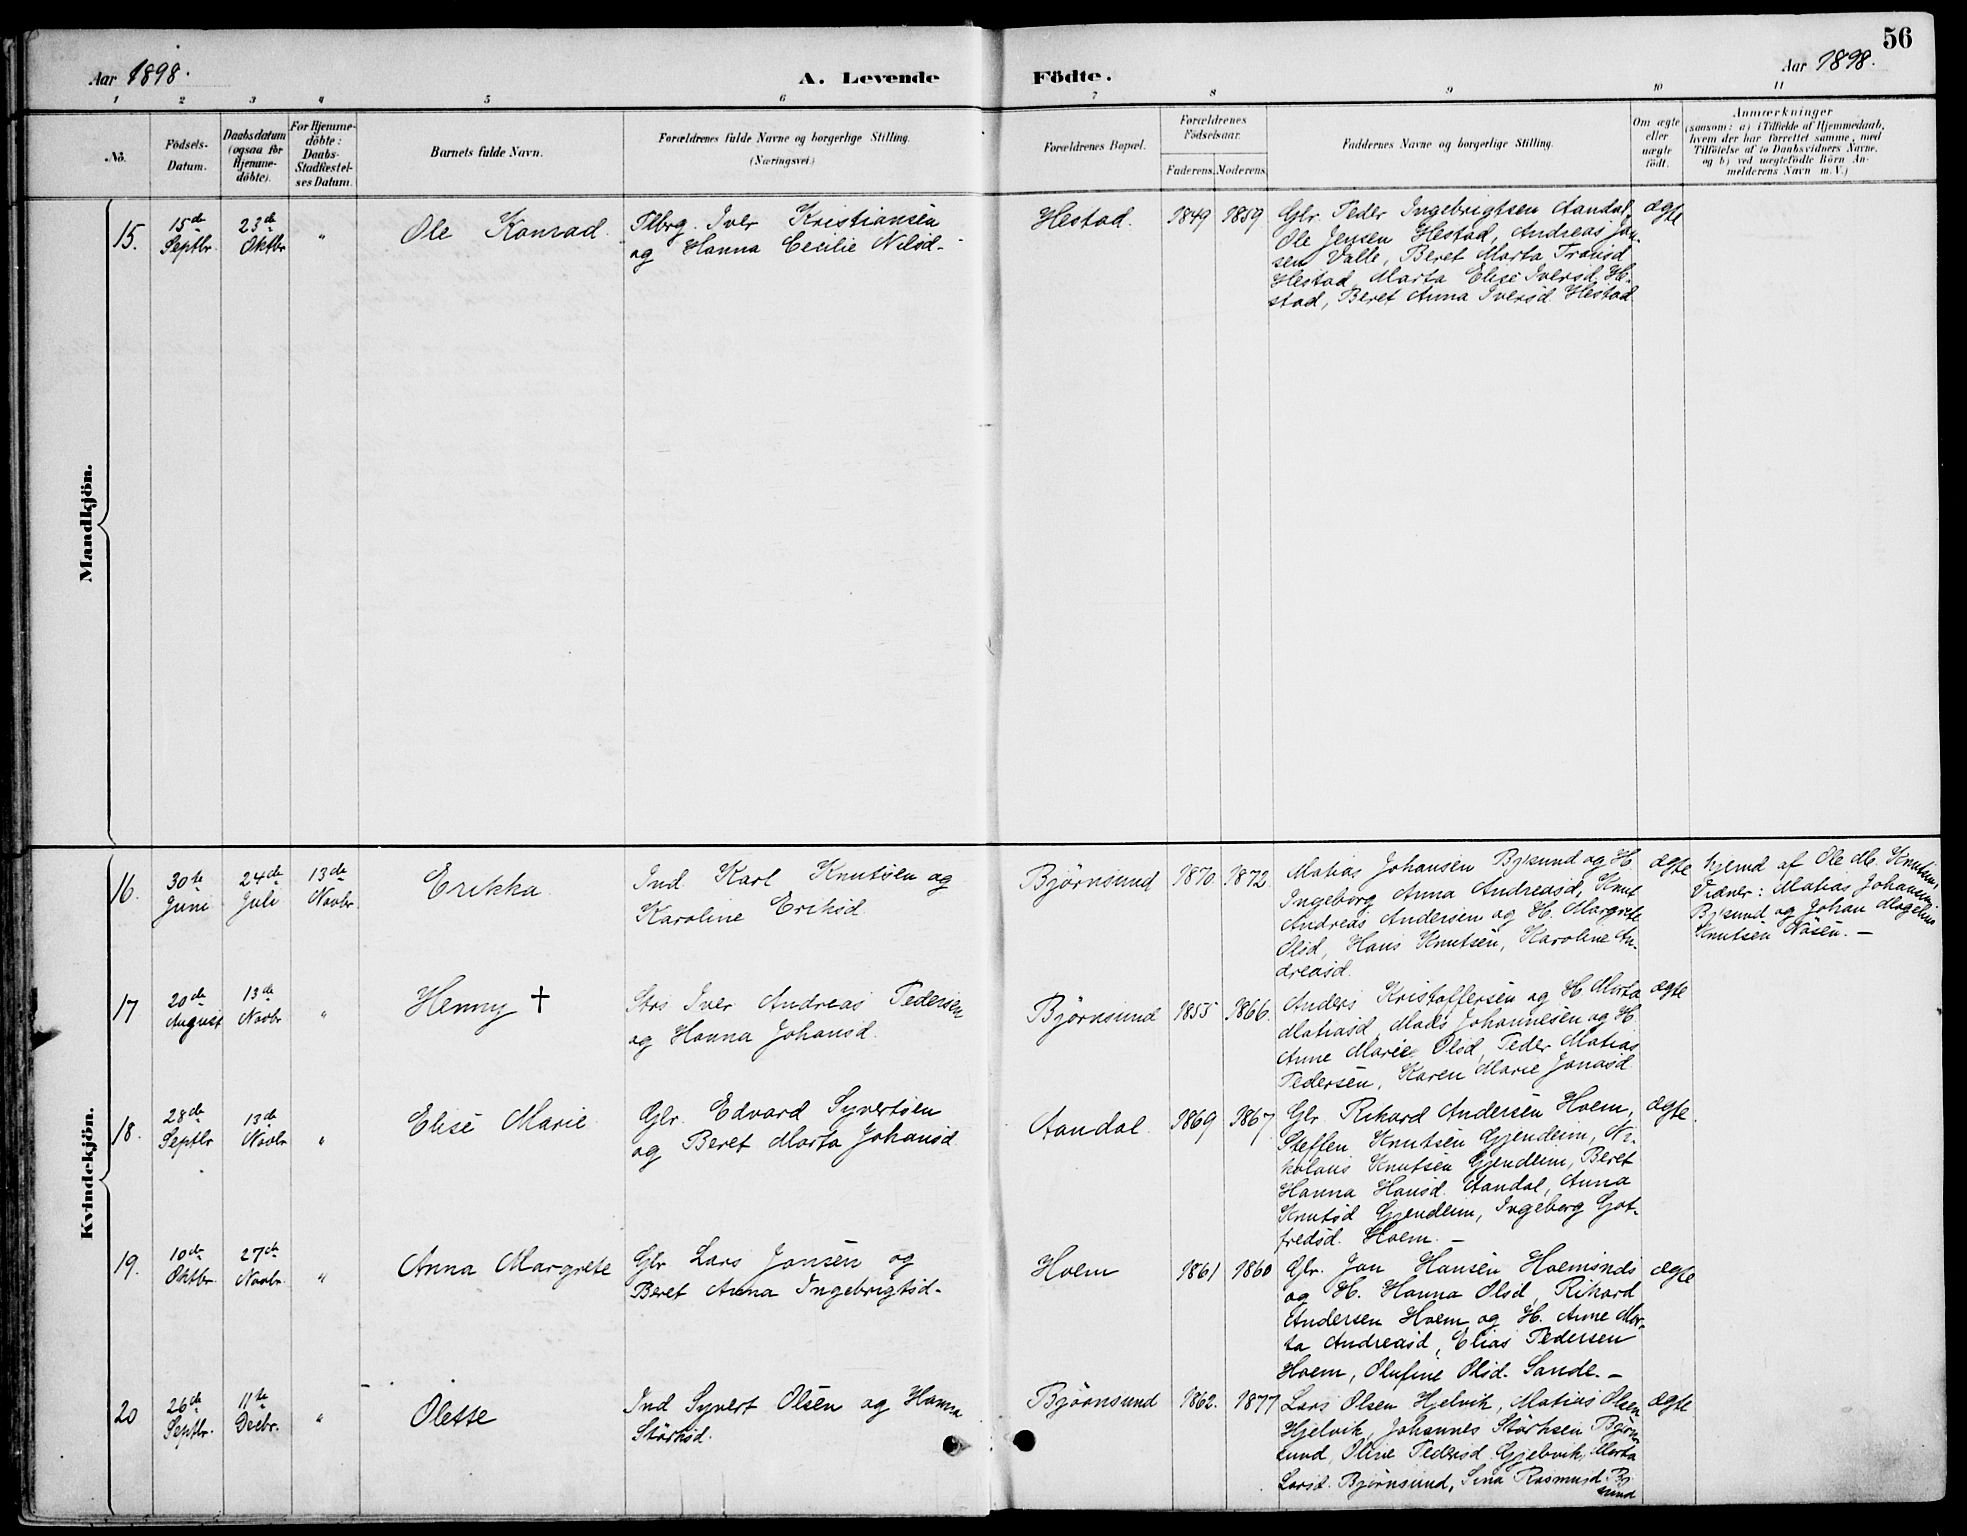 56
Aar 1898.
A. Levende
Födte.
Aar 1898.
1 2 3 4 5 6 7 8 9 10 11
No.
Födsels-
Datum.
Daabsdatum
(ogsaa for
Hjemme-
döbte).
For Hjemme-
döbte:
Daabs-
Stadfestel-
ses Datum.
Barnets fulde Navn.
Forældrenes fulde Navne og borgerlige Stilling.
(Næringsvei.)
Forældrenes Bopæl.
Forældrenes
Födselsaar.
Faderens.
Moderens.
Faddernes Navne og borgerlige Stilling.
Om ægte
eller
uægte
födt.
Anmærkninger
(saasom: a) i Tilfælde af Hjemmedaab,
hvem der har forrettet samme, med
Tilföielse af to Daabsvidners Navne,
og b) ved uægtefödte Börn An-
melderens Navn m. V.)
Mandkjön.
15.
15de
Septbr
23de
Oktbr
"
Ole Konrad.
Iver Kristiansen
og Hanna Cecilie Nilsd.
Hestad.
1849
1859
Gbr. Peder Ingebrigtsen Aandal,
Ole Jensen Hestad, Andreas Jan-
sen Valle, Beret Marta Tronsd
Hestad, Marta Elise Iversd. He-
stad, Beret Anna Iversd Hestad
ægte
Kvindekjön.
16.
30te
Juni
24de
Juli
13de
Novbr.
Erikka
Ind. Karl Knutsen og
Karoline Eriksd.
Björnsund
1870.
1872
Matias Johansen Bj.sund og H.
Ingeborg Anna Andreasd, Knut
Andreas Andersen og H. Margrete
Olsd, Hans Knutsen, Karoline An-
dreasd.
ægte
hjemd af Ole M. Knutsen.
Vidner: Matias Johansen
Bj.sund og Johan
Knutsen Nåsen. —
17
20de
August
13de
Novbr
"
Henny †
Iver Andreas Pedersen
og Hanna Johansd.
Björnsund
1855
1866.
Anders Kristoffersen og H. Marta
Matiasd, Mads Johannesen og H.
Anne Marie Olsd, Peder Matias
Pedersen, Karen Marie Jonasd
ægte
18.
28de
Septbr
13de
Novbr
"
Elise Marie
Gbr. Edvard Syvertsen
og Beret Marta Johansd
Aandal.
1869
1867
Gbr. Rikard Andersen Hoem,
Steffen Knutsen Gjendem, Ni-
kolaus Knutsen Gjendem, Beret
Hanna Hansd. Aandal, Anna
Knutsd Gjendem, Ingeborg Got-
fredsd. Hoem. —
ægte.
19.
10de
Oktbr.
27de
Novbr.
"
Anna Margrete
Gbr Lars Jonsen og
Beret Anna Ingebrigtsd.
Hoem
1861
1860
Gbr. Jon Hansen Hoemsnes
og H. Hanna Olsd, Rikard
Andersen Hoem og H. Anne Mar-
ta Andreasd, Elias Pedersen
Hoem, Olufine Olsd. Sande. —
ægte
20
26de
Septbr.
11te
Decbr.
"
Olette
Ind Syvert Olsen og Hanna
Störksd.
Björnsund
1862.
1877
Lars Olsen Hjelvik, Matias Olsen
Hjelvik, Johannes Störksen Björn-
sund, Oline Pedersd. Gjelvik, Marta
Larsd. Björnsund, Sina Rasmusd. Bj.
sund
ægte